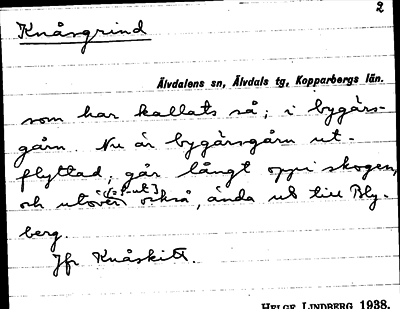 2
Knåsgrind
Älvdalens sn, Älvdals tg, Kopparbergs län.
som har kallats så; i bygärs-
gårn. Nu är bygärsgårn ut-
flyttad, går långt oppi skogen,
och utöver också, ända ut till Bly-
berg.
Jfr Knåskitt.
HELGE LINDBERG 1938.